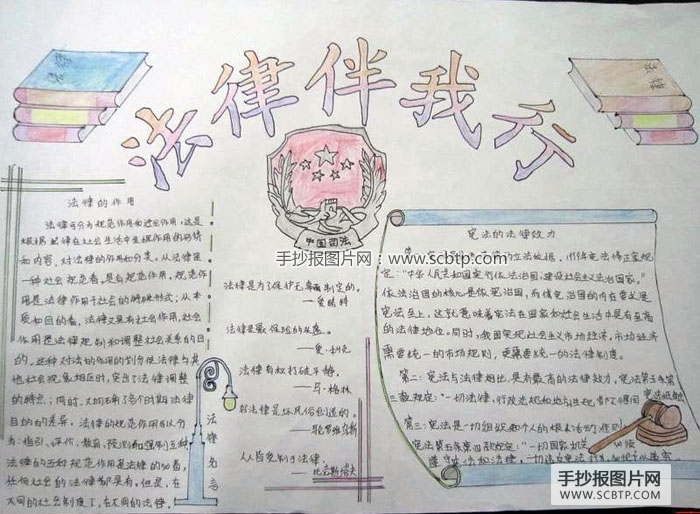 法律伴我行
法律
中国司法
手抄报图片网 - www.scbtp.com
法律的作用
法律可分为规范作用和社会作用，这是
根据法律在社会生活中发挥作用的形式
和内容，对法律的作用的分类。从法律是
一种社会规范看，是有规范作用，规范作
用是法律作用于社会的特殊形式；从本
质和目的看，法律又具有社会作用，社会
作用是法律规制和调整社会关系的目
的。这种对法的作用的划分使法律与其
他社会现象相区别，突出了法律调整
的特点；同时，又明确了各个时期法律
目的的差异。法律的规范作用可以分
为：指引、评价、教育、预测和强制五种
法律的五种规范作用是法律的必备，
任何社会的法律都具有。但是，在
不同的社会制度下，在不同的法律，
法律名言
法律是为了保护无辜而制定的。
——爱略特
法律是最保险的
法律有权打破平静。
——马·格林
好法律是坏风俗创造的。
——马克罗维乌斯
人人皆受制于法律。
宪法的法律效力
的立法依据，1999年宪法修正案规
定：“中华人民共和国实行依法治国，建设社会主义法治国家。”
依法治国的核心是依宪治国，而依宪治国的内在要求是
宪法至上，这就意味着宪法在国家和社会生活中是有至高
的法律地位。同时，我国实现社会主义市场经济，市场经济
需要统一的市场规则，更需要统一的法律制度。
第二：宪法与法律相比，是有最高的法律效力，宪法第五条第
三款规定：“一切法律、行政法规和地方性法规都不得同宪法抵触
第三：宪法是一切组织和个人的根本活动准则
宪法第五条第四款规定：“一切国家机关
遵守宪法和法律，一切违反宪法
手抄报图片网
WWW.SCBTP.COM